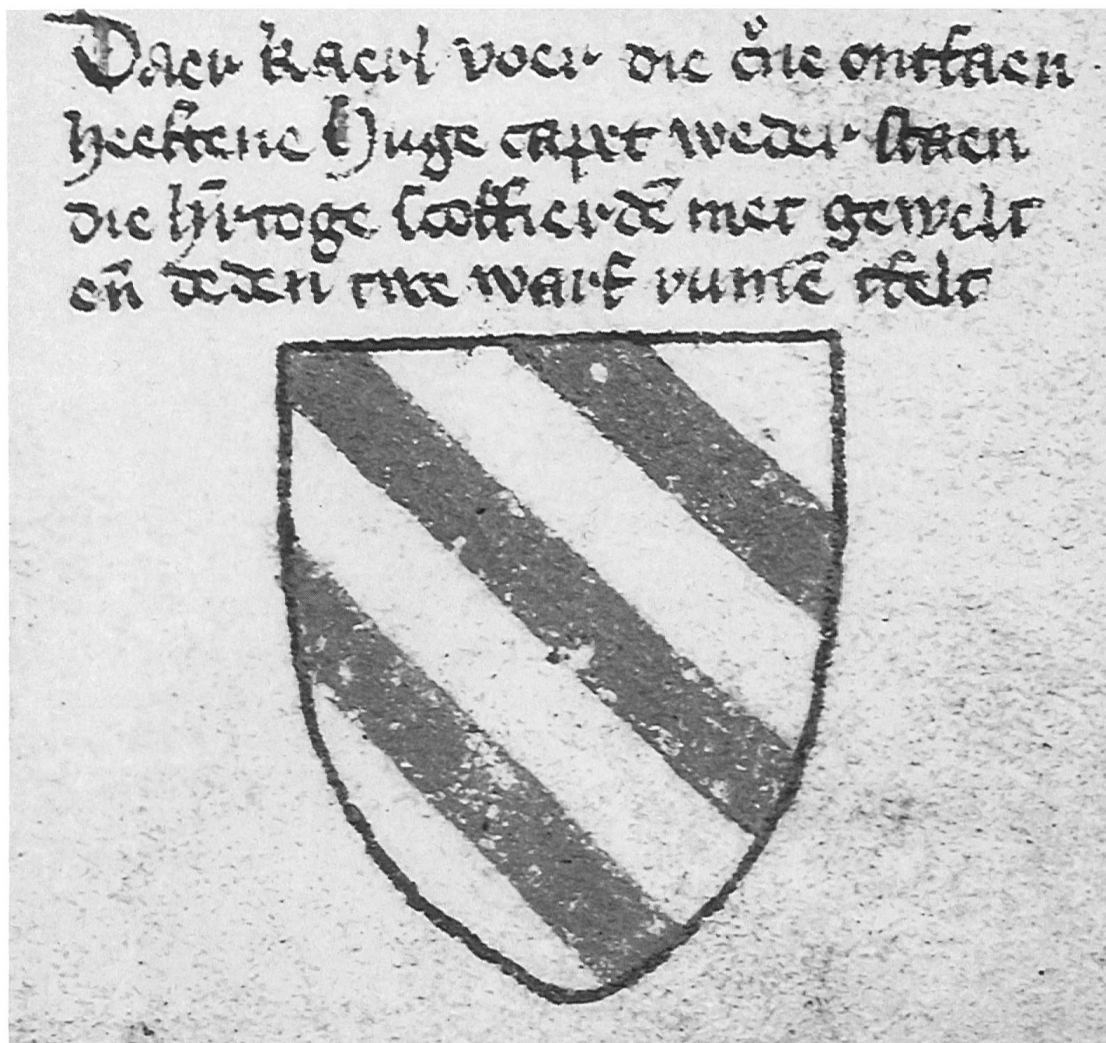 Daer kaerl voer die cr̄ne ontfaen
heeftene Huge capet weder staen
die h̄rtoge scoffierdē met gewelt
eñ deden twe warf rumē tfelt